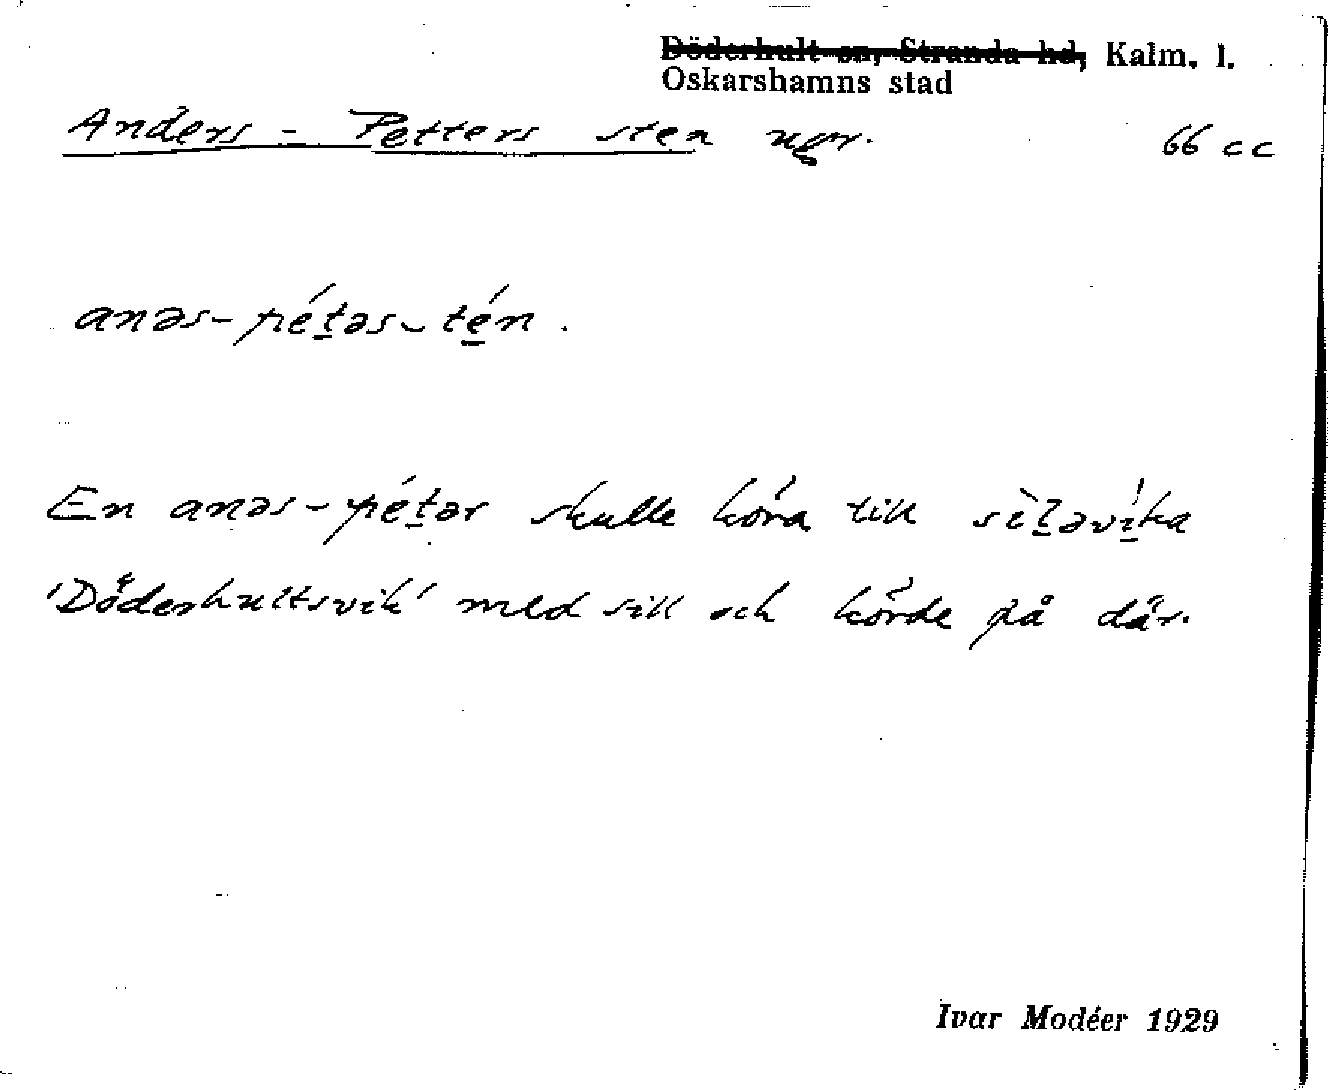 Döderhult sn, Stranda hd, Kalm. l.
Oskarshamns stad
Anders-Petters sten 66 cc
anəs-pétəs-tén.
En anəs-pétər skulle köra till sìləvíka
'Döderhultsvik' med sill och körde på där.
Ivar Modéer 1929